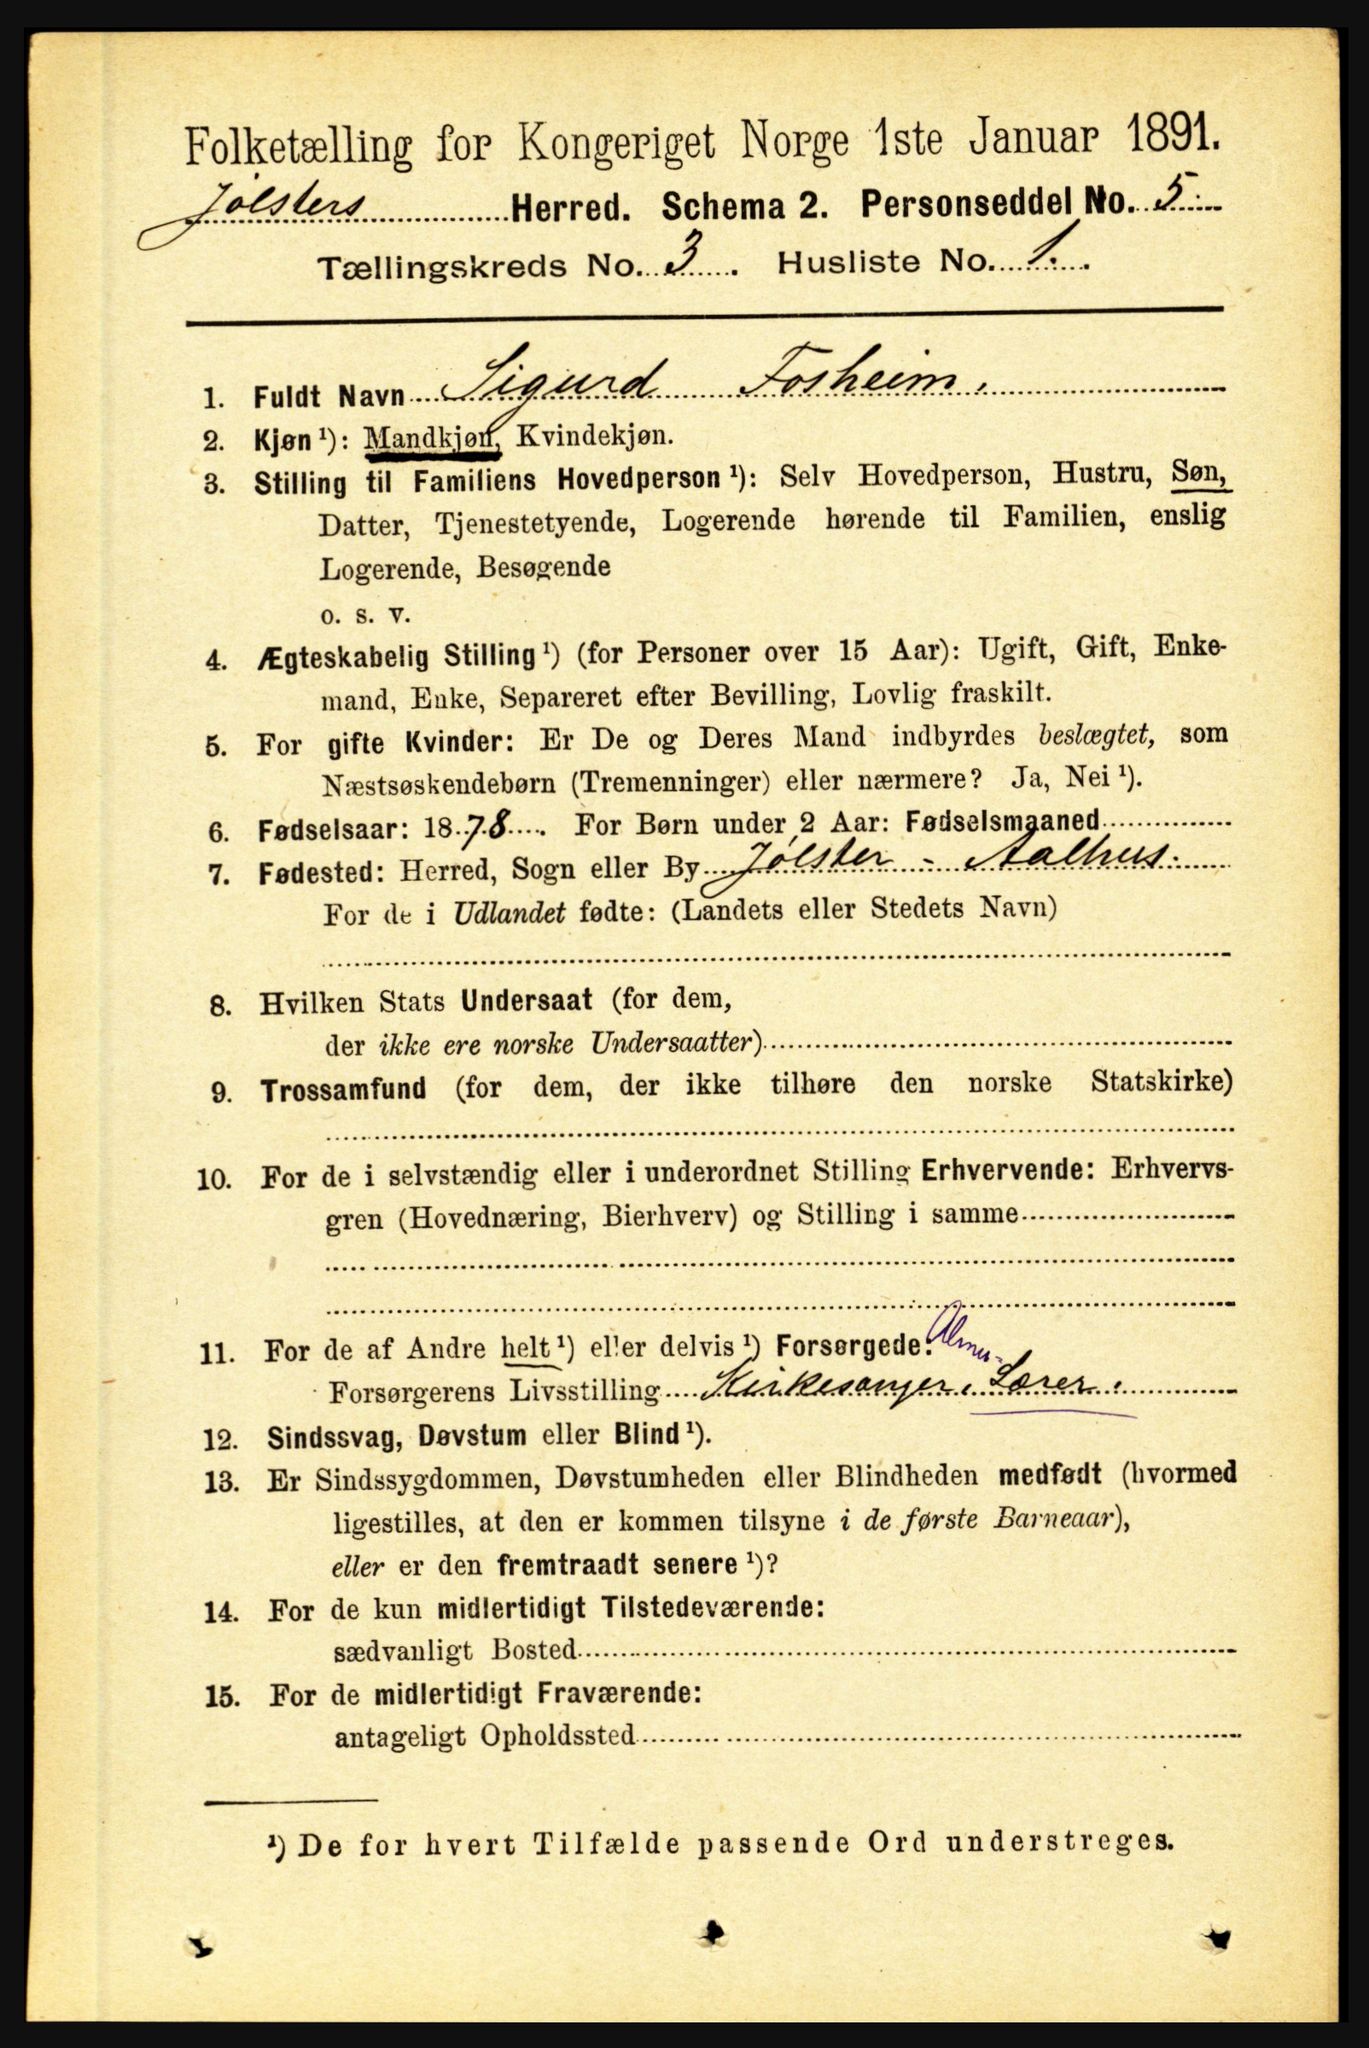 Folketælling for Kongeriget Norge 1ste Januar 1891.
Jølsters Herred. Schema 2. Personseddel No. 5.
Tællingskreds No. 3. Husliste No. 1.
1. Fuldt Navn Sigurd Fosheim.
2. Kjøn ¹): Mandkjøn, Kvindekjøn.
3. Stilling til Familiens Hovedperson ¹): Selv Hovedperson, Hustru, Søn,
Datter, Tjenestetyende, Logerende hørende til Familien, enslig
Logerende, Besøgende
o. s. v.
4. Ægteskabelig Stilling ¹) (for Personer over 15 Aar): Ugift, Gift, Enke-
mand, Enke, Separeret efter Bevilling, Lovlig fraskilt.
5. For gifte Kvinder: Er De og Deres Mand indbyrdes beslægtet, som
Næstsøskendebørn (Tremenninger) eller nærmere? Ja, Nei ¹).
6. Fødselsaar: 1878. For Børn under 2 Aar: Fødselsmaaned
7. Fødested: Herred, Sogn eller By Jølster - Aalhus.
For de i Udlandet fødte: (Landets eller Stedets Navn)
8. Hvilken Stats Undersaat (for dem,
der ikke ere norske Undersaatter)
9. Trossamfund (for dem, der ikke tilhøre den norske Statskirke)
10. For de i selvstændig eller i underordnet Stilling Erhvervende: Erhvervs-
gren (Hovednæring, Bierhverv) og Stilling i samme
11. For de af Andre helt ¹) eller delvis ¹) Forsørgede: Almue-
Forsørgerens Livsstilling Kirkesanger, Lærer.
12. Sindssvag, Døvstum eller Blind ¹).
13. Er Sindssygdommen, Døvstumheden eller Blindheden medfødt (hvormed
ligestilles, at den er kommen tilsyne i de første Barneaar),
eller er den fremtraadt senere ¹)?
14. For de kun midlertidigt Tilstedeværende:
sædvanligt Bosted
15. For de midlertidigt Fraværende:
antageligt Opholdssted
¹) De for hvert Tilfælde passende Ord understreges.